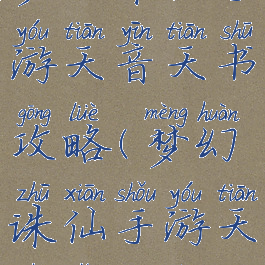 yóu tiān yīn tiān shū
游天音天书
gōng lüè mèng huàn
攻略(梦幻
zhū xiān shǒu yóu tiān
诛仙手游天